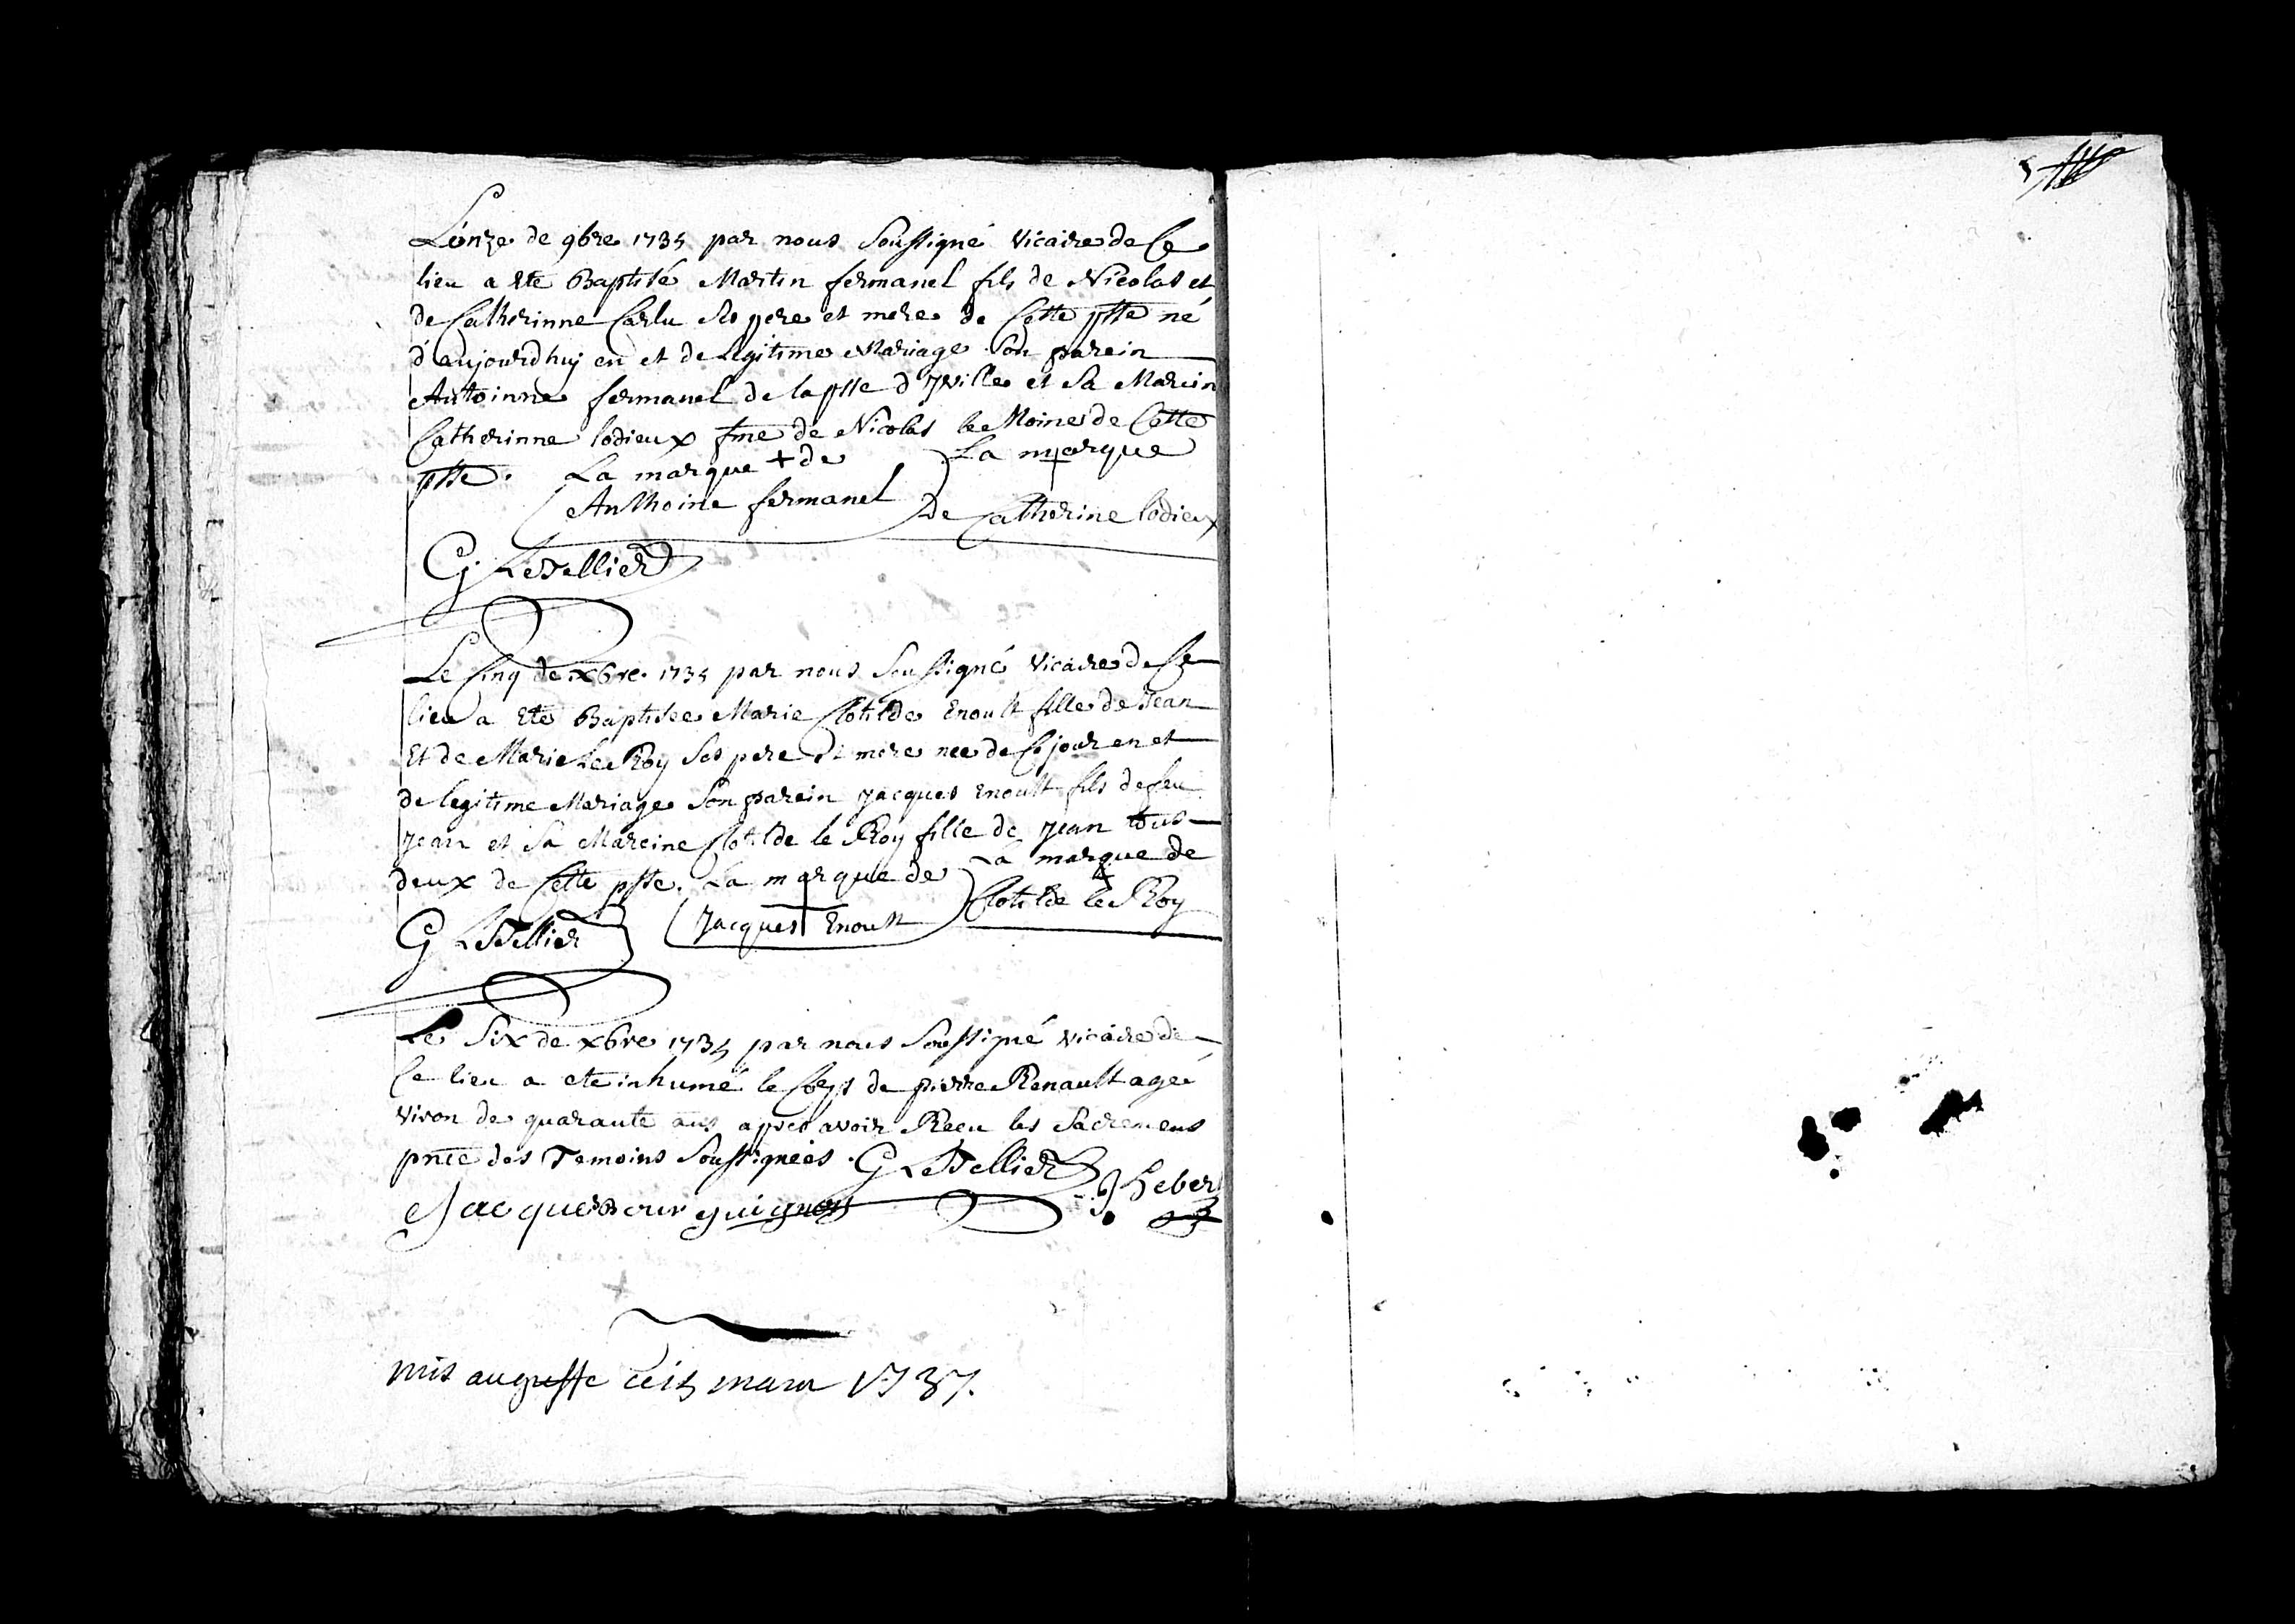 L'onze de 9bre 1735 par nous soussigné vicaire de Ce
lieu a ete Baptisé Martin fermanel fils de Nicolas et
de Catherinne Carlu ses pere et mere de Cette psse né
d'aujourdhuy en et de legitime Mariage son parein
Antoinne fermanel de la psse d'yville et sa Marein
Catherinne lodieux fme de Nicolas le Moine de Cette
psse. La marque + de La marque
Anthoine fermanel De Catherine lodieux
G. LeTellier
Le Cinq de xbre 1735 par nous soussigné vicaire de Ce
lieu a ete Baptisee Marie Clotilde Enoult fille de Jean
Et de Marie Le Roy ses pere et mere nee de Ce jour en et
de legitime Mariage son parein Jacques Enoult fils de feu
Jean et sa Mareine Clotilde le Roy fille de Jean tous
deux de Cette psse. La marque de La marque de
G LeTellier Jacques Enoult Clotilde le Roy
Le Six de xbre 1735 par nous soussigné vicaire de
Ce lieu a ete inhumé le Corps de pierre Renault agé
viron de quarante ans apres avoir Receu les Sacremens
pnce des Temoins soussignées. G LeTellier
Jacques Bourguignon J heber
mis au greffe ce 15 mars 1737.